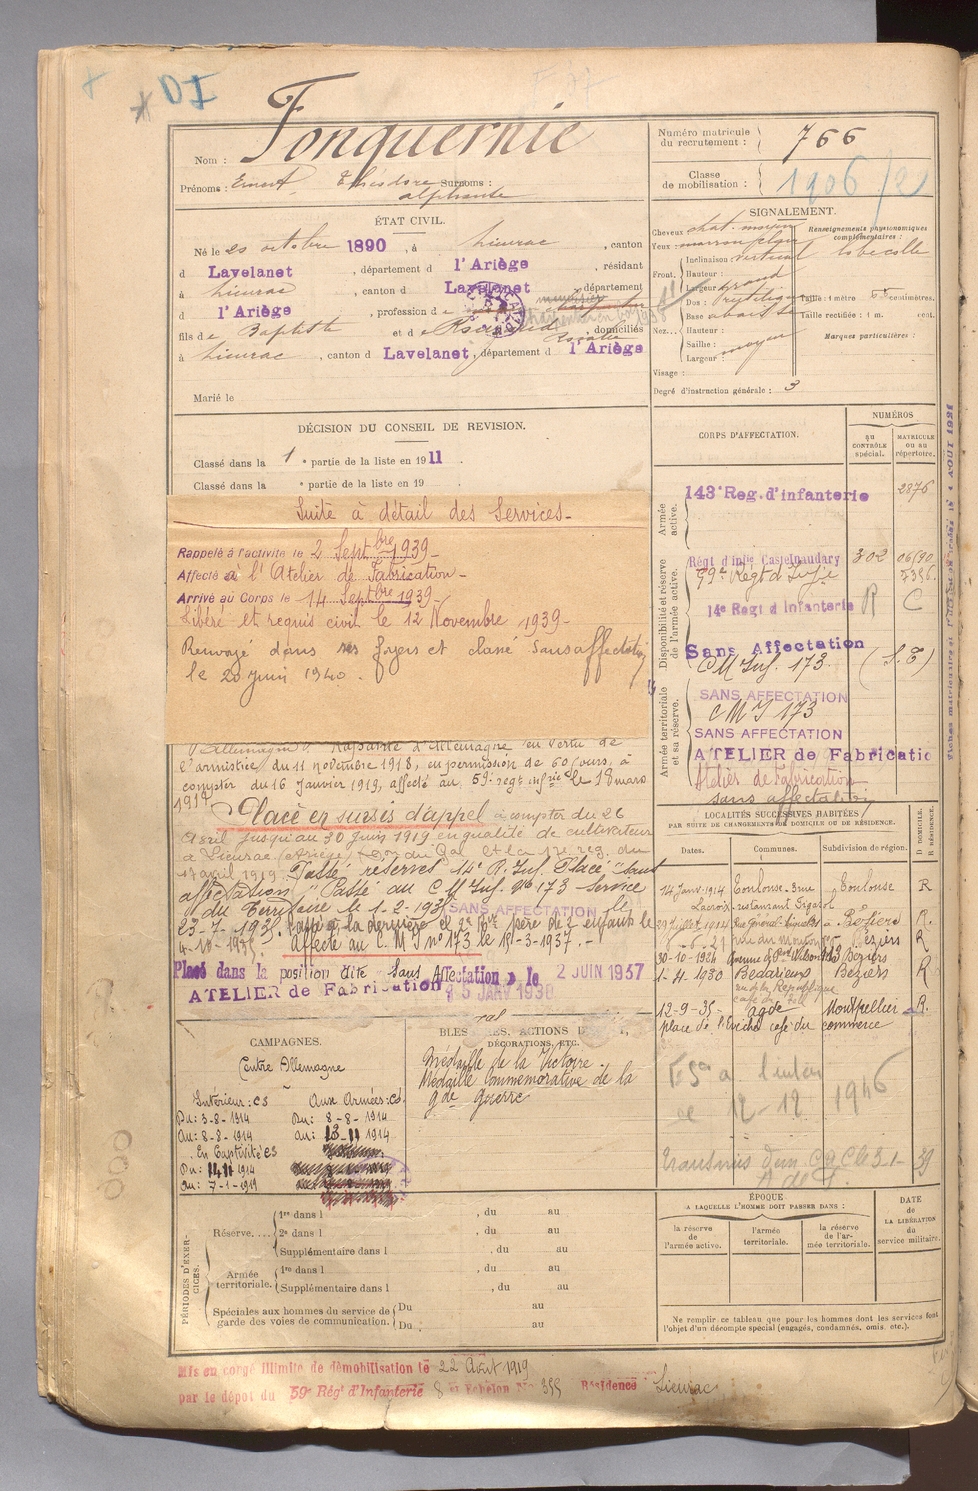 DI
Nom : Fonquernie
Prénoms : Ernest Théodore Surnoms :
alphonse
Numéro matricule
du recrutement : 766
Classe
de mobilisation : 1906/22
ÉTAT CIVIL.
Né le 20 octobre 1890, à Lieurac, canton
d Lavelanet, département d l'Ariège, résidant
à Lieurac, canton d Lavelanet, département
d l'Ariège, profession de
fils de Baptiste et de Rosalie, domiciliés
à Lieurac, canton d Lavelanet, département d l'Ariège
Marié le
SIGNALEMENT.
Cheveux chat. moyen
Yeux marron clair
Front. Inclinaison : vertical
Hauteur :
Largeur : grand
Nez. Dos : rectiligne
Base : abaissée
Hauteur :
Saillie :
Largeur : moyen
Visage :
Renseignements physionomiques
complémentaires :
lobe collé
Taille : 1 mètre centimètres.
Taille rectifiée : 1 m. cent.
Marques particulières :
Degré d'instruction générale : 3
DÉCISION DU CONSEIL DE REVISION.
Classé dans la 1e partie de la liste en 1911.
Classé dans la e partie de la liste en 19
Suite à détail des Services-
Rappelé à l'activité le 2 Septbre 1939-
Affecté à l'Atelier de Fabrication-
Arrivé au Corps le 14 Septbre 1939-
Libéré et requis civil le 12 Novembre 1939-
Renvoyé dans ses foyers et classé Sans affectation
le 20 juin 1940.
d'Allemagne. Rapatrié d'Allemagne en vertu de
l'armistice du 11 novembre 1918, en permission de 60 jours, à
compter du 16 Janvier 1919, affecté au 59e regt infrie le 18 mars
1919
Placé en sursis d'appel à compter du 26
Avril jusqu'au 30 juin 1919 en qualité de cultivateur
à Lieurac (Ariège)
17 avril 1919. Passé réserves 14e R. Inf. Placé "sans
affectation" Passé au C M Inf. No 173 Service
du Territoire le 1-2-193
SANS AFFECTATION le
23-7-1935. Passé à la dernière père de 2 enfants le
4-10-1935. affecté au C. M I no 173 le 15-3-1937.-
Placé dans la position dite "Sans Affectation" le 2 JUIN 1937
ATELIER de Fabrication 25 JANV 1938
CORPS D'AFFECTATION.
NUMÉROS
au
CONTRÔLE
spécial.
MATRICULE
ou au
répertoire.
Armée
active.
143e Reg. d'infanterie 2876
Disponibilité et réserve
de l'armée active.
Régt d'infie Castelnaudary 302 06/90
59e Régt d'Infie 7356
14e Regt d'Infanterie R C
Sans Affectation
C M Inf. 173. (S.T)
Armée territoriale
et sa réserve.
SANS AFFECTATION
C M I 173
SANS AFFECTATION
ATELIER de Fabricatio
Atelier de Fabrication
sans affectation
LOCALITÉS SUCCESSIVES HABITÉES
PAR SUITE DE CHANGEMENTS DE DOMICILE OU DE RÉSIDENCE.
Dates. Communes. Subdivision de région. D DOMICILE. R RÉSIDENCE.
14 Janv. 1914 Toulouse-3 rue Toulouse R
Lacroix-restaurant Figarol
Béziers R.
Béziers R
30-10-1924 Béziers
1-4-1930 Bédarieux Béziers R
rue de la République
café du
12-9-35- Agde Montpellier R.
place de l'Evêché café du commerce
12-12 1946
CAMPAGNES.
Contre Allemagne
Intérieur : CS
Du : 3-8-1914
Au : 8-8-1914
En Captivité CS
Du : 14 11 1914
Au : 7-1-1919
Aux Armées : CD
Du : 8-8-1914
Au : 13-11 1914
BLESSURES, ACTIONS D'ÉCLAT,
DÉCORATIONS, ETC.
Médaille de la Victoire.
Médaille commémorative de la
gde Guerre
PÉRIODES D'EXERCICES.
Réserve.... 1re dans l , du au
2e dans l , du au
Supplémentaire dans l , du au
Armée
territoriale. 1re dans l , du au
Supplémentaire dans l , du au
Spéciales aux hommes du service de
garde des voies de communication. Du au
Du au
ÉPOQUE
A LAQUELLE L'HOMME DOIT PASSER DANS :
la réserve
de
l'armée active.
l'armée
territoriale.
la réserve
de l'armée territoriale.
DATE
de
LA LIBÉRATION
du
service militaire.
Ne remplir ce tableau que pour les hommes dont les services font
l'objet d'un décompte spécial (engagés, condamnés, omis, etc.).
Mis en congé illimité de démobilisation le 22 Avril 1919
par le dépôt du 59e Régt d'Infanterie 8 e Echelon No 355 Résidence Lieurac